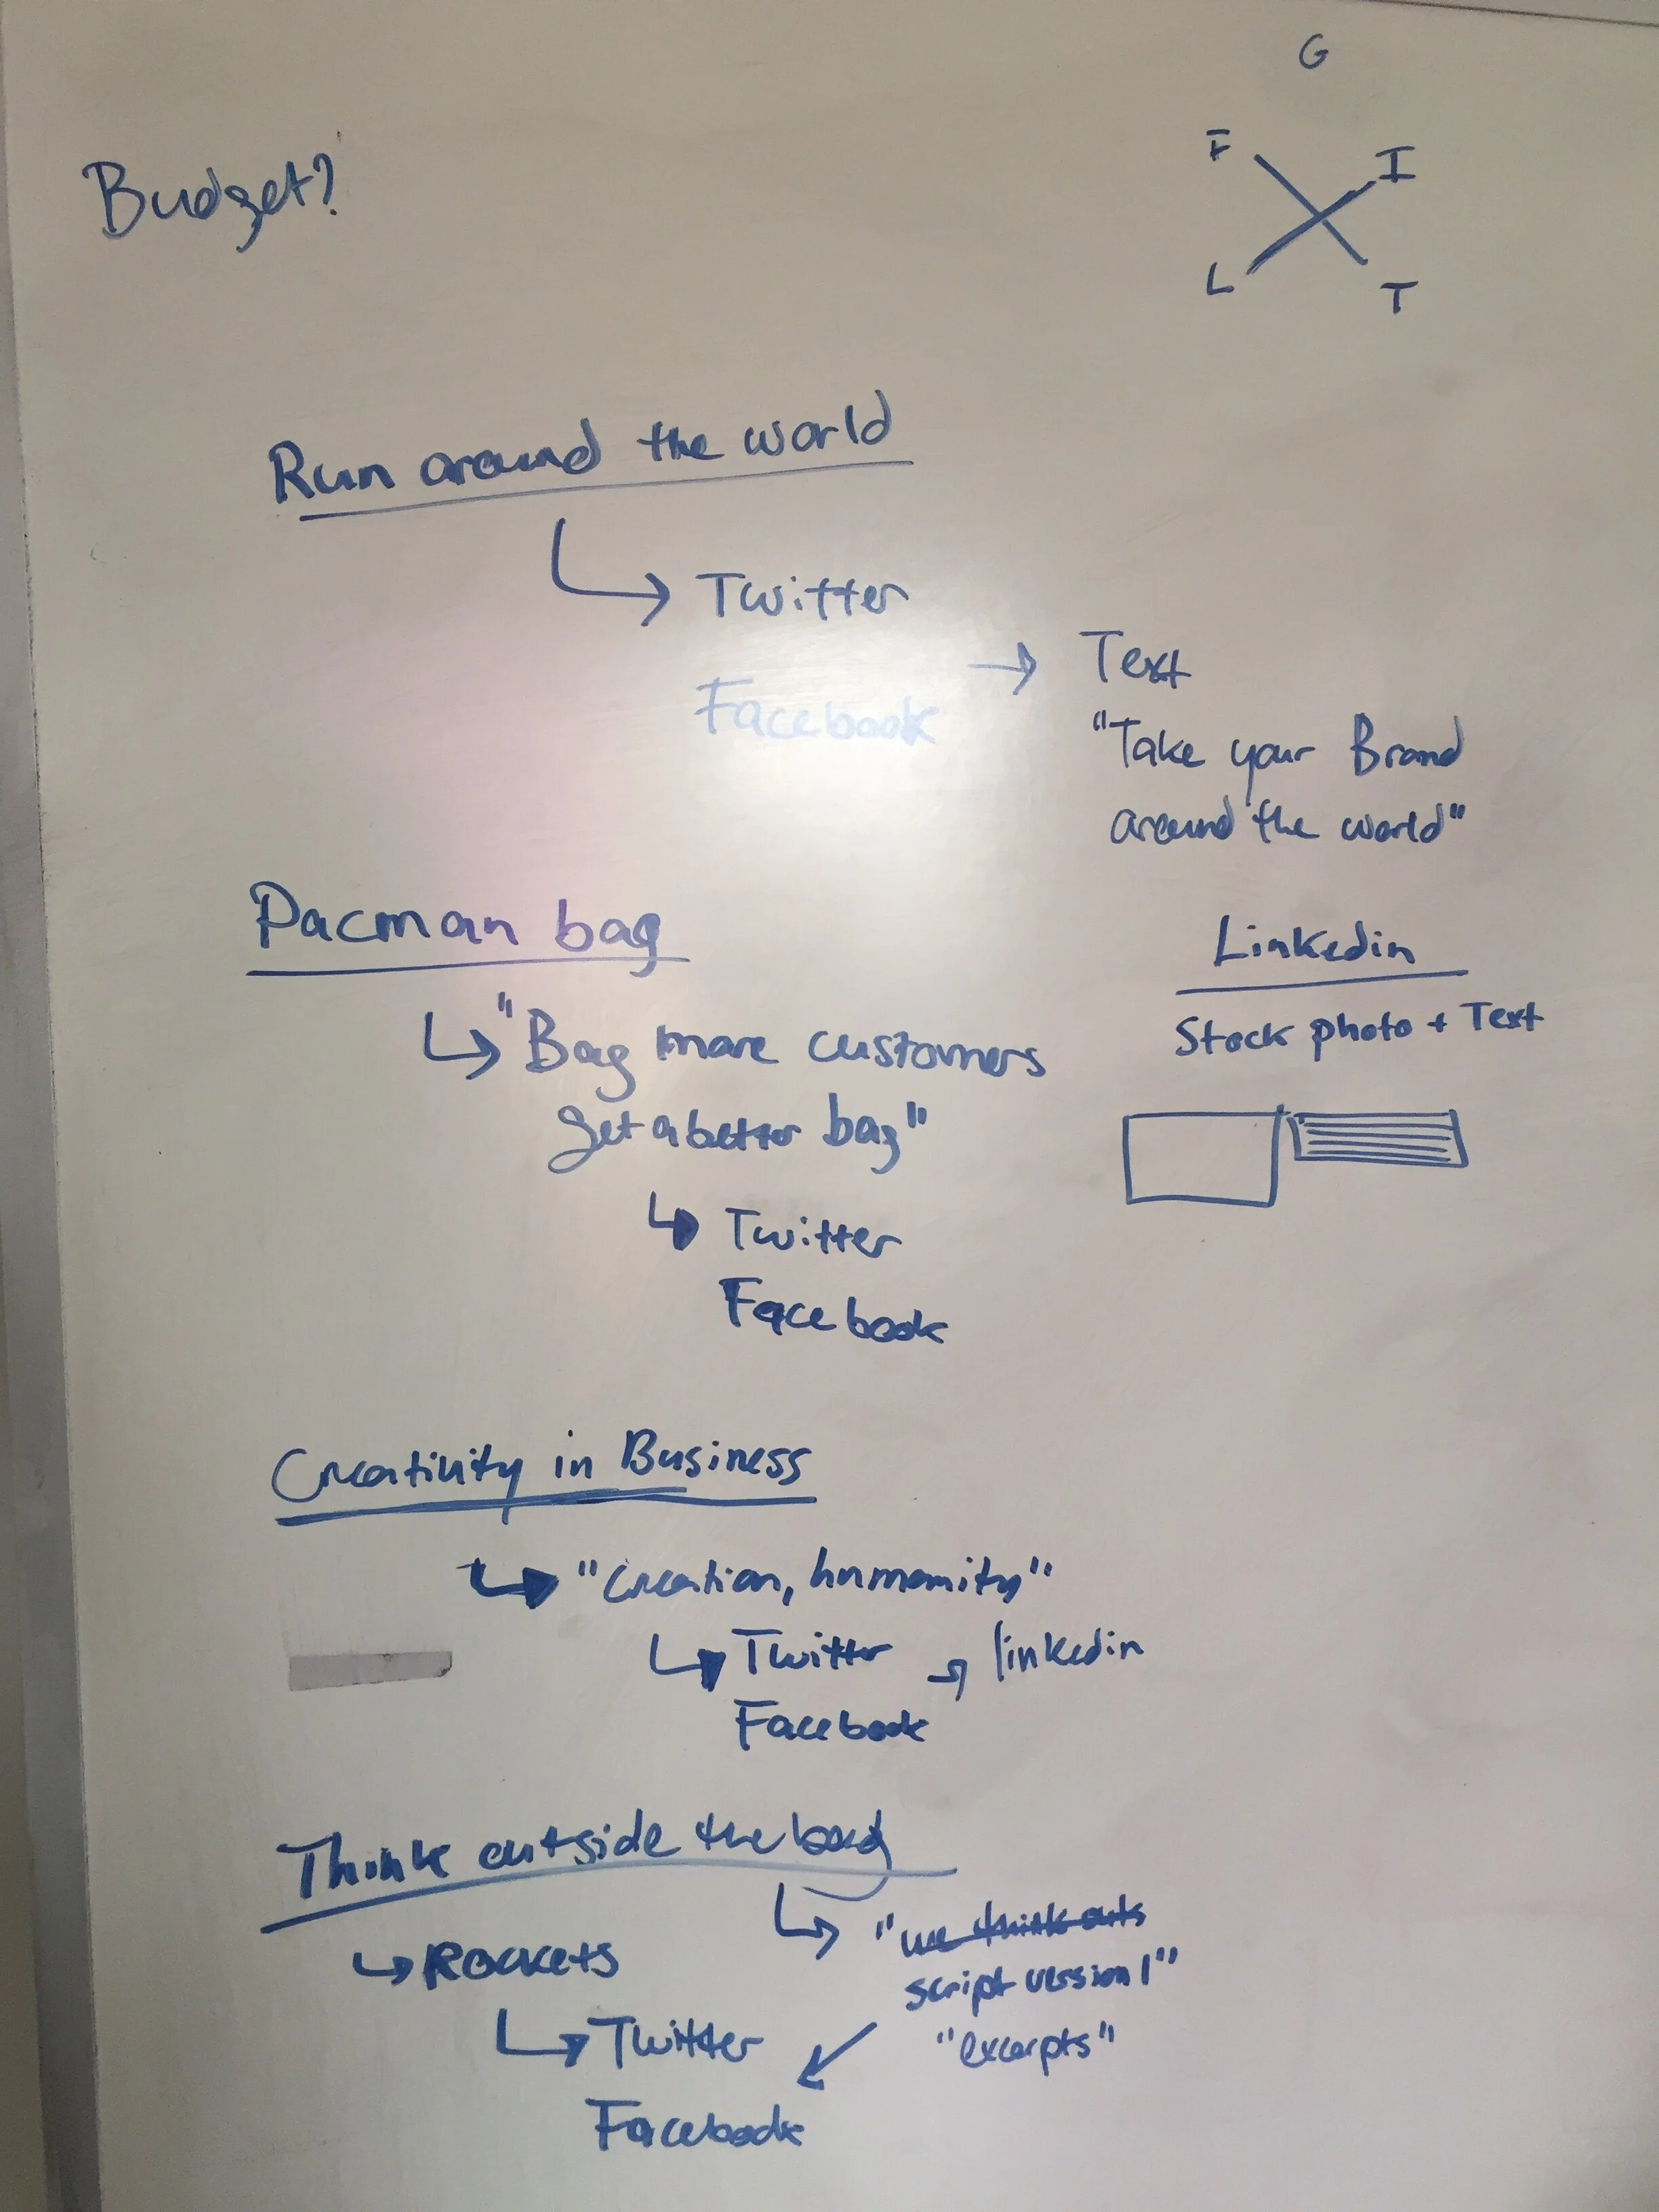 G
Budget?
F I
L T
Run around the world
Twitter
Facebook
Text
"Take your Brand
around the world"
Pacman bag
"Bag more customers
get a better bag"
Twitter
Facebook
Linkedin
Stock photo + Text
Creativity in Business
"creation, humanity"
Twitter
Facebook
linkedin
Think outside the
Rockets
Twitter
Facebook
"we think outs
script version 1"
"excerpts"